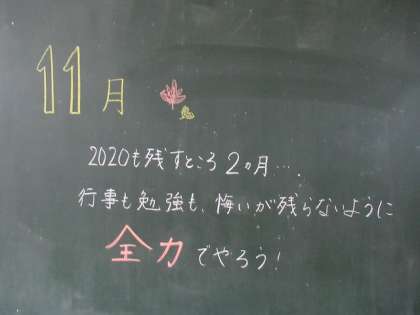 11月
2020も残すところ2ヵ月・・・.
行事も勉強も、悔いが残らないように
全力でやろう！